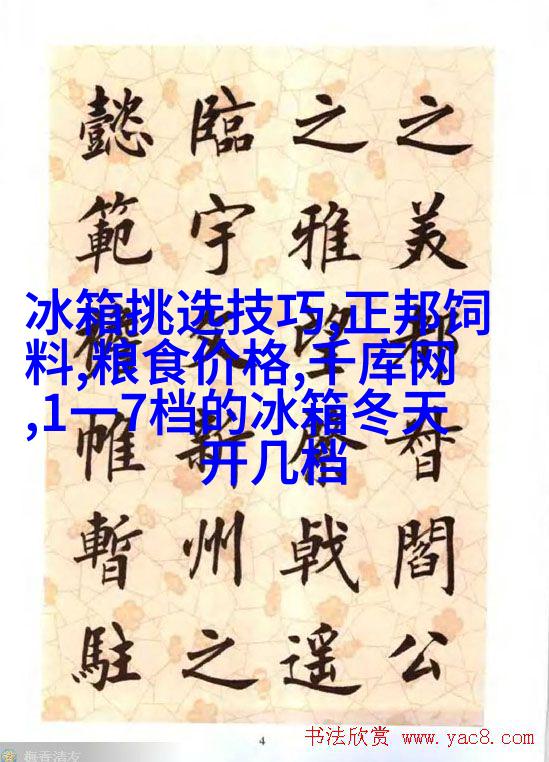 之美都督閻公
之雅望戟遥
臨宇文新州之
懿範帷暫駐
冰箱挑选技巧,正邦饲
料,粮食价格,千库网
,1一7档的冰箱冬天
开几档
4
书法欣赏 www.yac8.com
梅香清友